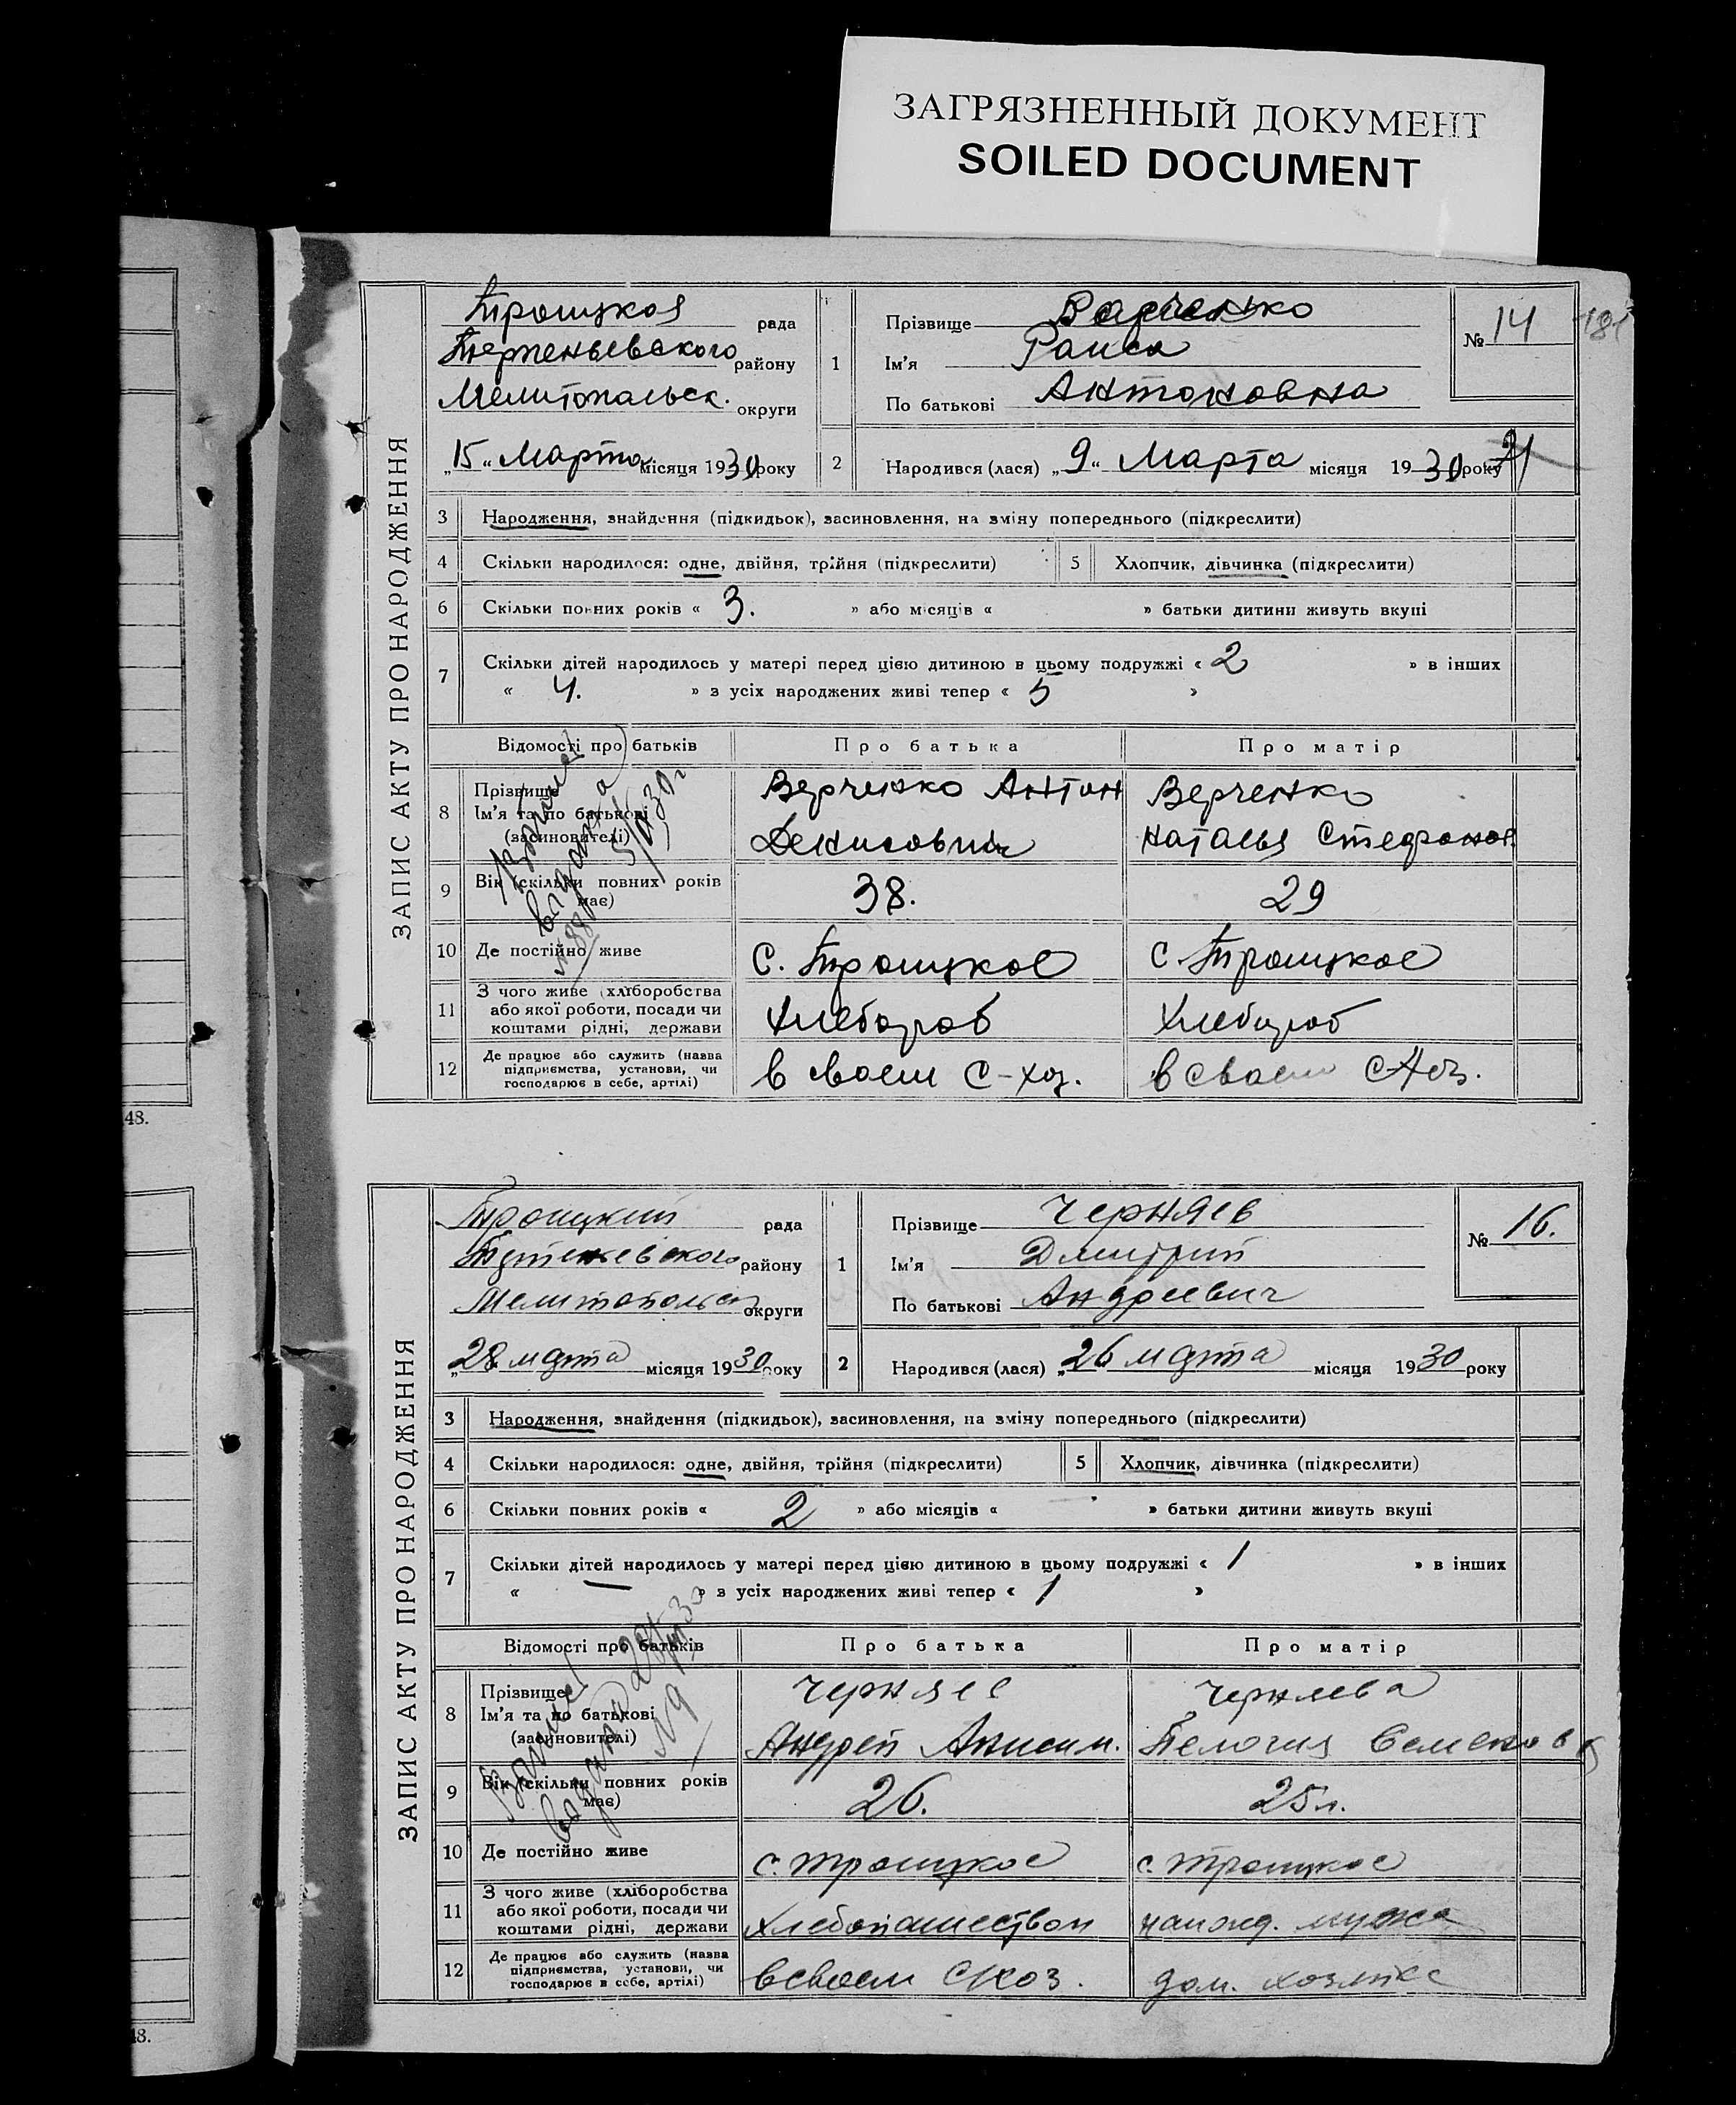 ЗАГРЯЗНЕННЫЙ ДОКУМЕНТ
SOILED DOCUMENT
ЗАПИС АКТУ ПРО НАРОДЖЕННЯ
Троицкая рада
Терпеньевского району
Мелитопольск. округи
„15“ Марта місяця 1930 року
1
Прізвище
Ім'я Раиса
По батькові Антоновна
№ 14
181
2
Народився (лася) „9“ Марта місяця 1930 року
21
3 Народження, знайдення (підкидьок), засиновлення, на зміну попереднього (підкреслити)
4 Скільки народилося: одне, двійня, трійня (підкреслити) 5 Хлопчик, дівчинка (підкреслити)
6 Скільки повних років « 3. » або місяців « » батьки дитини живуть вкупі
7 Скільки дітей народилось у матері перед цією дитиною в цьому подружжі « 2 » в інших
« 4. » з усіх народжених живі тепер « 5 »
Відомості про батьків Про батька Про матір
8 Прізвище
Ім'я та по батькові
(засиновителі)
Верченко Антон
Денисович
Верченко
Наталья Стефанов.
9 Вік (скільки повних років
має)
38. 29
10 Де постійно живе с. Троицкое с. Троицкое
11 З чого живе (хліборобства
або якої роботи, посади чи
коштами рідні, держави
Хлебороб Хлебороб
12 Де працює або служить (назва
підприємства, установи, чи
господарює в себе, артілі)
в своем с-хоз. в своем с-хоз.
48.
ЗАПИС АКТУ ПРО НАРОДЖЕННЯ
Троицкий рада
Терпеньевского району
Мелитопольск округи
„28 марта місяця 1930 року
1
Прізвище Черняев
Ім'я Дмитрий
По батькові Андреевич
№ 16.
2
Народився (лася) „26 марта місяця 1930 року
3 Народження, знайдення (підкидьок), засиновлення, на зміну попереднього (підкреслити)
4 Скільки народилося: одне, двійня, трійня (підкреслити) 5 Хлопчик, дівчинка (підкреслити)
6 Скільки повних років « 2 » або місяців « — » батьки дитини живуть вкупі
7 Скільки дітей народилось у матері перед цією дитиною в цьому подружжі « 1 » в інших
« — » з усіх народжених живі тепер « 1 »
Відомості про батьків Про батька Про матір
8 Прізвище
Ім'я та по батькові
(засиновителі)
Черняев
Андрей Анисим.
Черняева
Пелагия Семенов
9 Вік (скільки повних років
має)
26. 25 л.
10 Де постійно живе с. Троицкое с. Троицкое
11 З чого живе (хліборобства
або якої роботи, посади чи
коштами рідні, держави
Хлебопашеством мужа
12 Де працює або служить (назва
підприємства, установи, чи
господарює в себе, артілі)
в своем с хоз. дом. хозяйка
48.